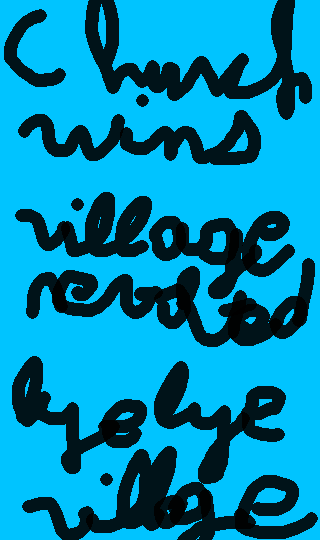 Church
wins
village
revolted
bye bye
village